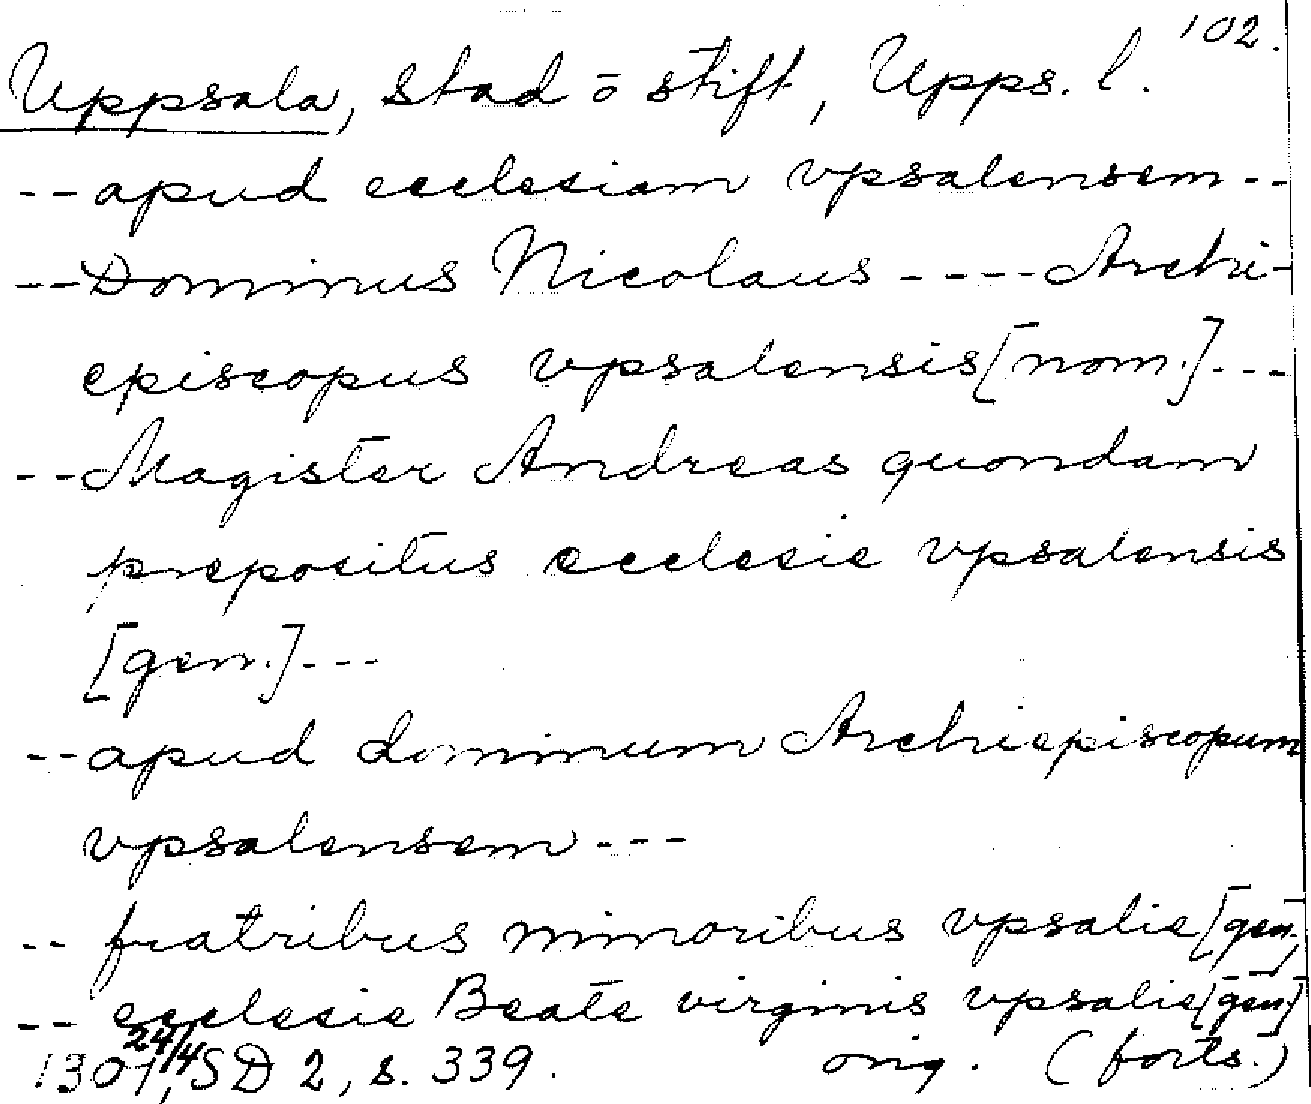 102.
Uppsala, stad o stift, Upps. l.
-- apud ecclesiam vpsalensem --
-- Dominus Nicolaus ---- Archi-
episcopus vpsalensis [nom.] ---
-- Magister Andreas quondam
prepositus ecclesie vpsalensis
[gen.] ---
-- apud dominum Archiepiscopum
vpsalensem ---
-- fratribus minoribus vpsalie [gen.]
-- ecclesie Beate virginis vpsalie [gen]
1301 24/4, SD 2, s. 339. orig. (forts.)